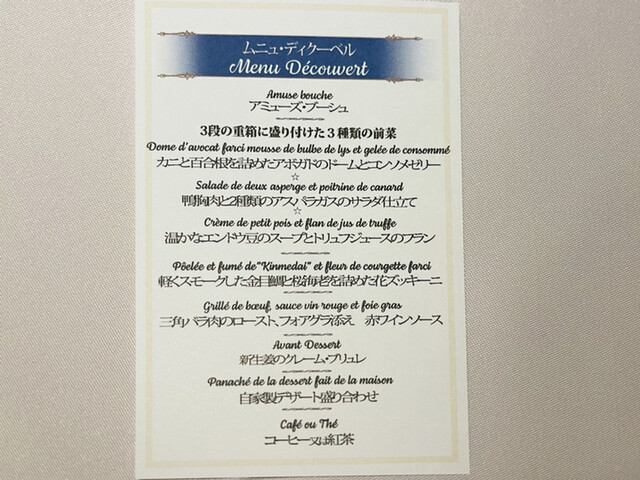 ムニュ・ディクーベル
Menu Découvert
Amuse bouche
アミューズ・ブーシュ
3段の重箱に盛り付けた3種類の前菜
Dome d'avocat farci mousse de bulbe de lys et gelée de consommé
カニと百合根を詰めたアボガドのドームとコンソメゼリー
☆
Salade de deux asperge et poitrine de canard
鴨胸肉と2種類のアスパラガスのサラダ仕立て
☆
Crème de petit pois et flan de jus de truffe
温かなエンドウ豆のスープとトリュフジュースのフラン
Pôelée et fumé de "Kinmedai" et fleur de courgette farci
軽くスモークした金目鯛と桜海老を詰めた花ズッキーニ
Grillé de bœuf, sauce vin rouge et foie gras
三角バラ肉のロースト、フォアグラ添え 赤ワインソース
Avant Dessert
新生姜のクレーム・ブリュレ
Panaché de la dessert fait de la maison
自家製デザート盛り合わせ
Café ou Thé
コーヒー又は紅茶